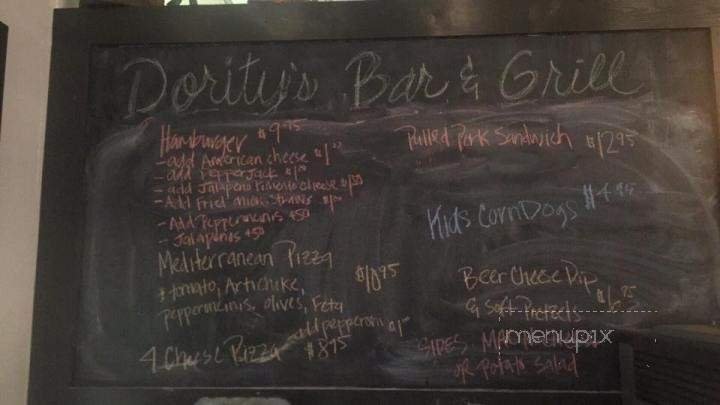 Dority's Bar & Grill
Hamburger $9.75
- add American cheese $1.00
- add Pepper Jack $1.00
- add Jalapeno Pimento cheese $1.50
- Add Fried onion straws $1.00
- Add Pepperoncinis $.50
- Jalapenos $.50
Mediterranean Pizza
$10.95
tomato, Artichoke,
pepperoncinis, olives, Feta
add pepperoni $1
4 Cheese Pizza $8.95
Pulled Pork Sandwich $12.95
Kids Corn Dogs $4.95
Beer Cheese Dip
& soft Pretzels $6.25
SIDES
or potato salad
menupix